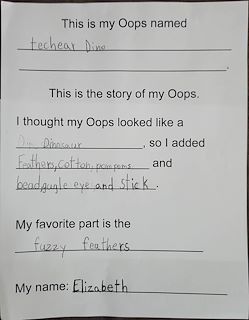 This is my Oops named
techear Dino
This is the story of my Oops.
I thought my Oops looked like a
Dinosaur, so I added
Feathers, cotton, pom poms and
bead, gugle eye and stick.
My favorite part is the
fuzzy feathers
My name: Elizabeth